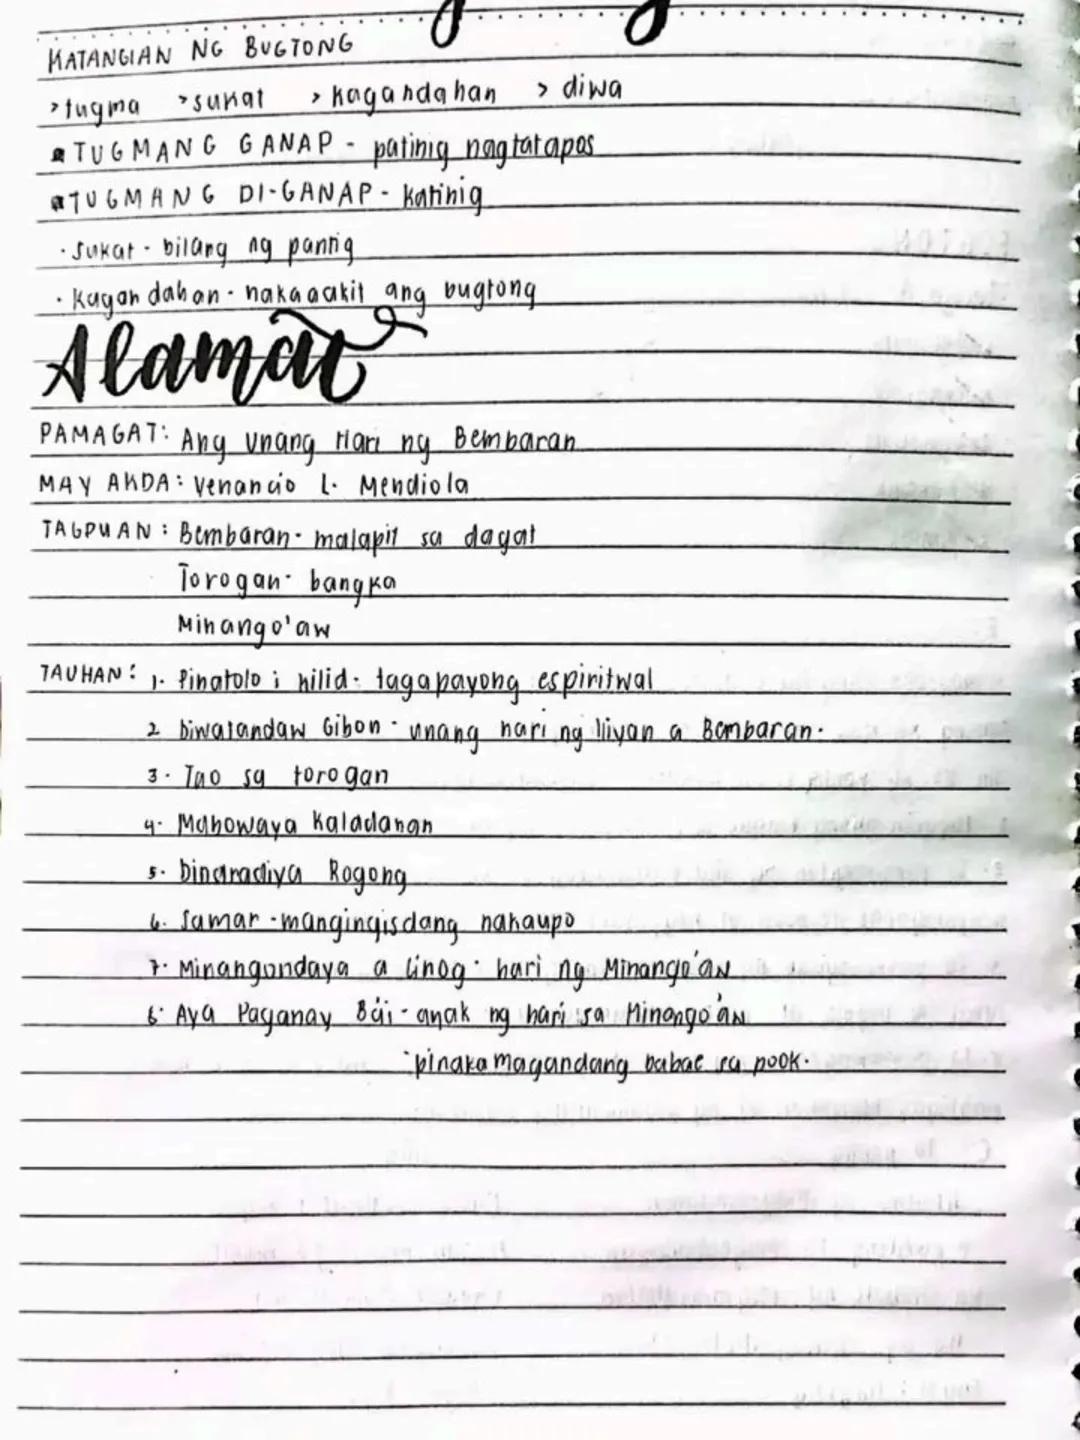 KATANGIAN NG BUGTONG
>tugma >sukat > kagandahan > diwa
TUGMANG GANAP - patinig nagtatapos
TUGMANG DI-GANAP - katinig
· Sukat - bilang ng pantig
· Kagandahan - nakaaakit ang bugtong
Alamat
PAMAGAT: Ang Unang Hari ng Bembaran
MAY AKDA: Venancio L. Mendiola
TAGPUAN: Bembaran - malapit sa dagat
Torogan - bangka
Minango'aw
TAUHAN: 1. Pinatolo i nilid - tagapayong espiritwal
2 Diwatandaw Gibon - unang hari ng Iliyan a Bembaran.
3. Tao sa torogan
4. Mabowaya Kaladanan
5. Dinaradiya Rogong
6. Samar - mangingisdang nakaupo
7. Minangondaya a Linog - hari ng Minango'aN
6. Aya Paganay Bai - anak ng hari sa Minango'aN
- pinakamagandang babae sa pook.